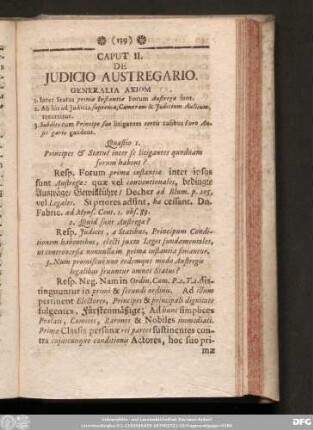 (139)
CAPUT II.
DE
JUDICIO AUSTREGARIO.
GENERALIA AXIOM
1. Inter Status prima Instantia Forum Austrega sunt.
2. Ab his ad Judicia suprema, Cameram & Judicium Aulicum,
3. Subditi cum Principe suo litigantes certis casibus foro Au-
gaudent.
Quæstio 1.
Principes & Status inter se litigantes quodnam
forum habent?
Resp. Forum prima instantia inter ipsos
sunt Austrega: quæ vel conventionales, bedingte
Austräge/ Decher ad Rhum. p.
vel Legales. Si priores adsint, hæ cessant. Dn.
Fabric. ad Myns. Cent. 1. obs. 83.
2. Quid sunt Austrega?
Resp. Judices, a Statibus, Principum Condi-
tionem habentibus, electi juxta Leges fundamentales,
ut controversia nonnullæ in prima instantia finiantur.
3. Num promiscuo uno eodemque modo Austregis
legalibus fruuntur omnes Status?
Resp. Neg. Nam in Ordin. Cam. P. 2. T. 2. dis-
tinguuntur in primi & secundi ordinis. Ad illum
pertinent Electores, Principes & principali dignitate
fulgentes, Fürstenmäßige; Ad hunc simplices
Prælati, Comites, Barones & Nobiles immediati.
Prima Classis personæ rei partes sustinentes con-
tra cujuscunque conditionis Actores, hoc suo pri-
mæ